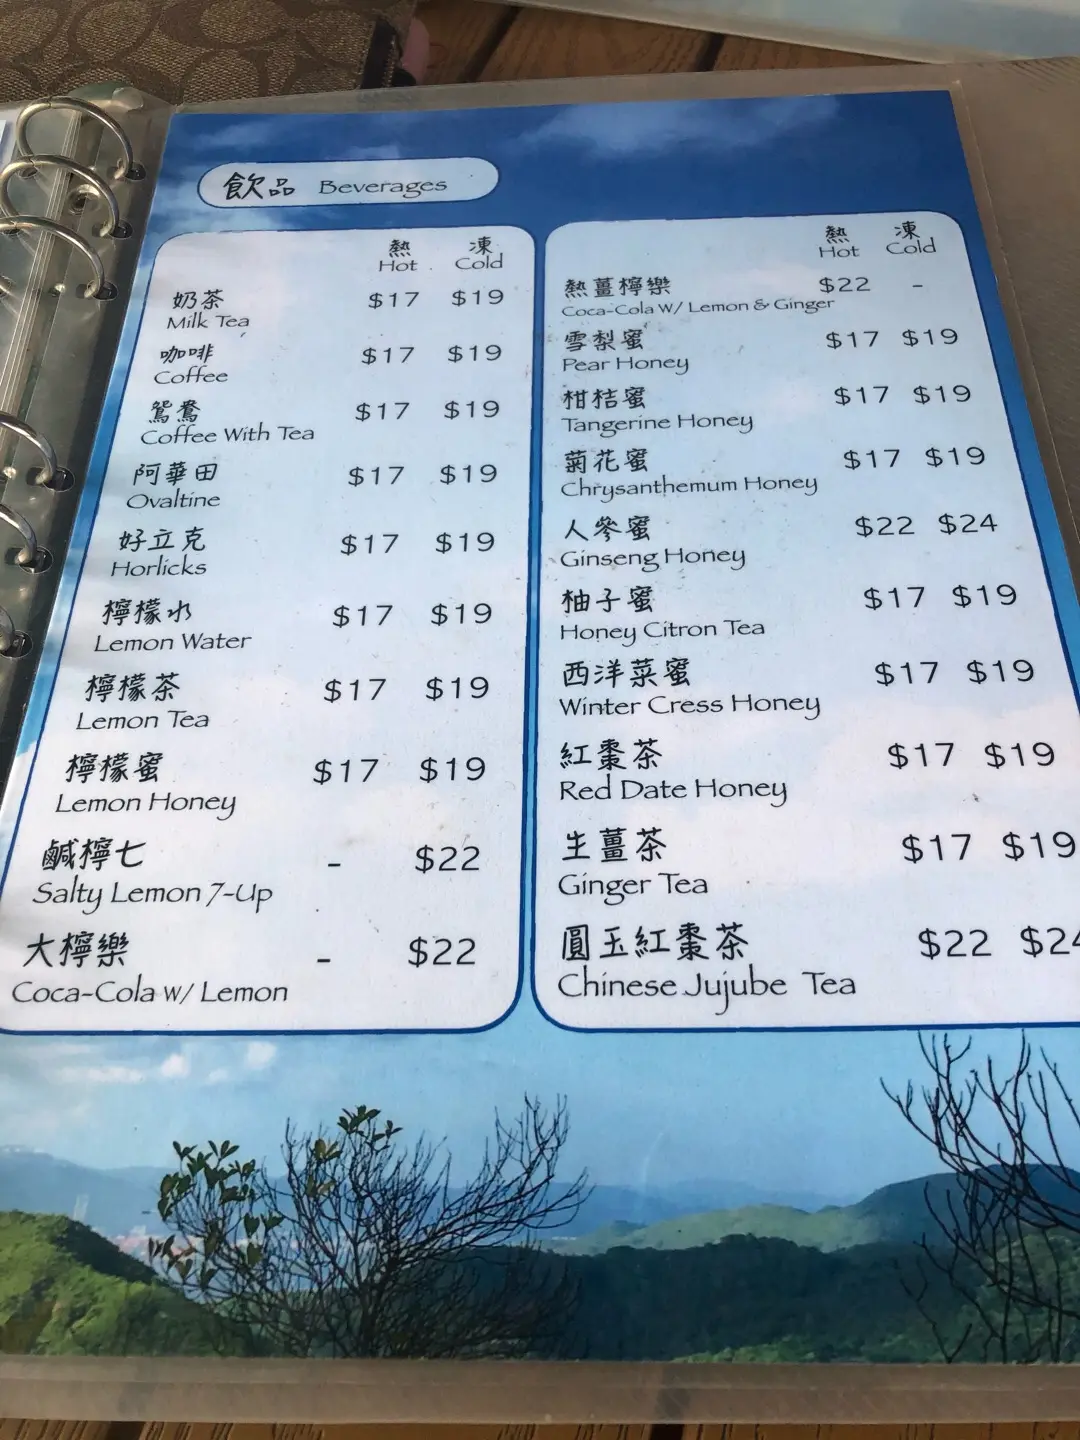 飲品 Beverages
熱 凍
Hot Cold
奶茶 $17 $19
Milk Tea
咖啡 $17 $19
Coffee
鴛鴦 $17 $19
Coffee With Tea
阿華田 $17 $19
Ovaltine
好立克 $17 $19
Horlicks
檸檬水 $17 $19
Lemon Water
檸檬茶 $17 $19
Lemon Tea
檸檬蜜 $17 $19
Lemon Honey
鹹檸七 - $22
Salty Lemon 7-Up
大檸樂 - $22
Coca-Cola w/ Lemon
熱 凍
Hot Cold
熱薑檸樂 $22 -
Coca-Cola W/ Lemon & Ginger
雪梨蜜 $17 $19
Pear Honey
柑桔蜜 $17 $19
Tangerine Honey
菊花蜜 $17 $19
Chrysanthemum Honey
人參蜜 $22 $24
Ginseng Honey
柚子蜜 $17 $19
Honey Citron Tea
西洋菜蜜 $17 $19
Winter Cress Honey
紅棗茶 $17 $19
Red Date Honey
生薑茶 $17 $19
Ginger Tea
圓玉紅棗茶 $22 $24
Chinese Jujube Tea